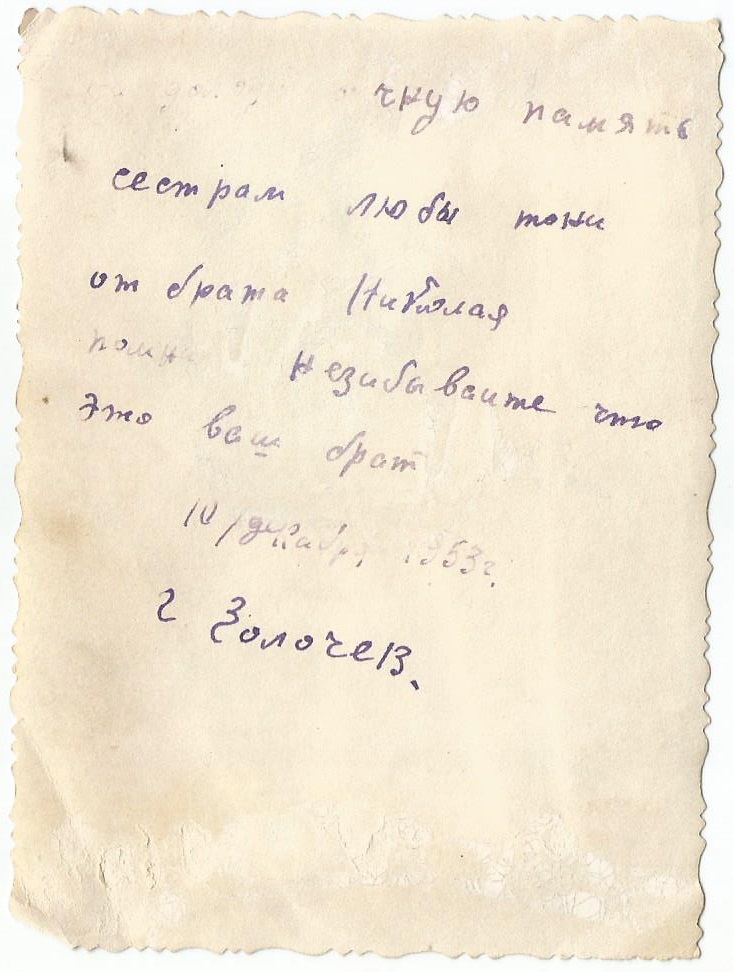 чную память
сестрам Любы тони
от брата Николая
помни незибываите что
это ваш брат
10/декабря 1953г.
г Золочев.